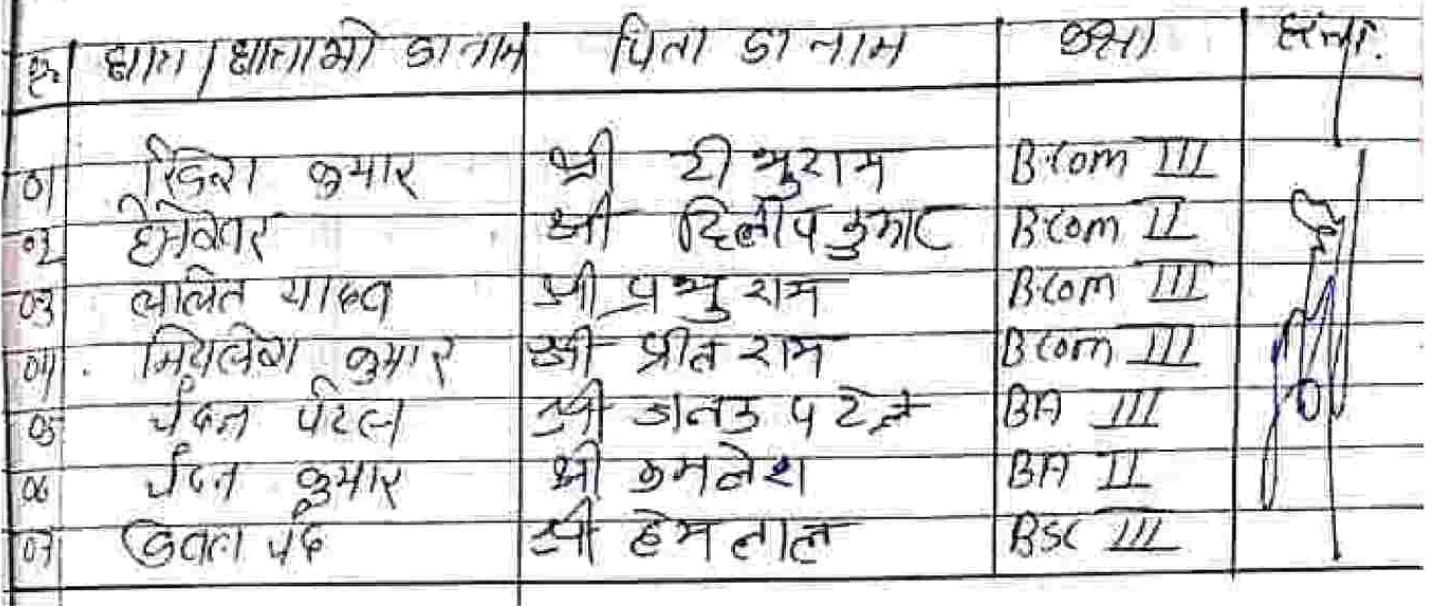 क्र छात्र / छात्राओं का नाम पिता का नाम कक्षा
01 कुमार श्री टी भुराम B.Com III
02 श्री दिलीप कुमार B.Com II
03 ललित यादव श्री प्रभु राम B.Com III
04 मिथलेश कुमार श्री प्रीत राम B.Com III
05 चंदन पटेल श्री पटेल BA III
06 चंदन कुमार श्री कमलेश BA II
07 चंद श्री हेमलाल BSC III